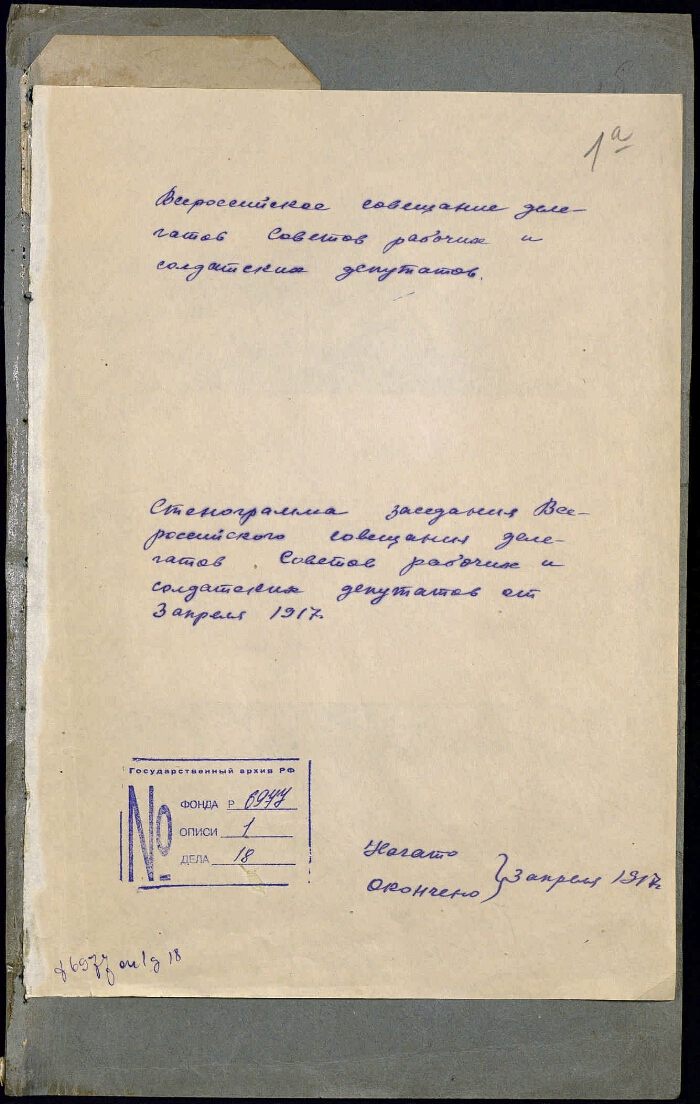 1а
Всероссийское совещание деле-
гатов Советов рабочих и
солдатских депутатов.
Стенограмма заседания Все-
российского совещания деле-
гатов Советов рабочих и
солдатских депутатов от
3 апреля 1917г.
Государственный архив РФ
№
ФОНДА Р 6977
ОПИСИ 1
ДЕЛА 18
Начато
Окончено } 3 апреля 1917г.
ф6977 оп1 д 18